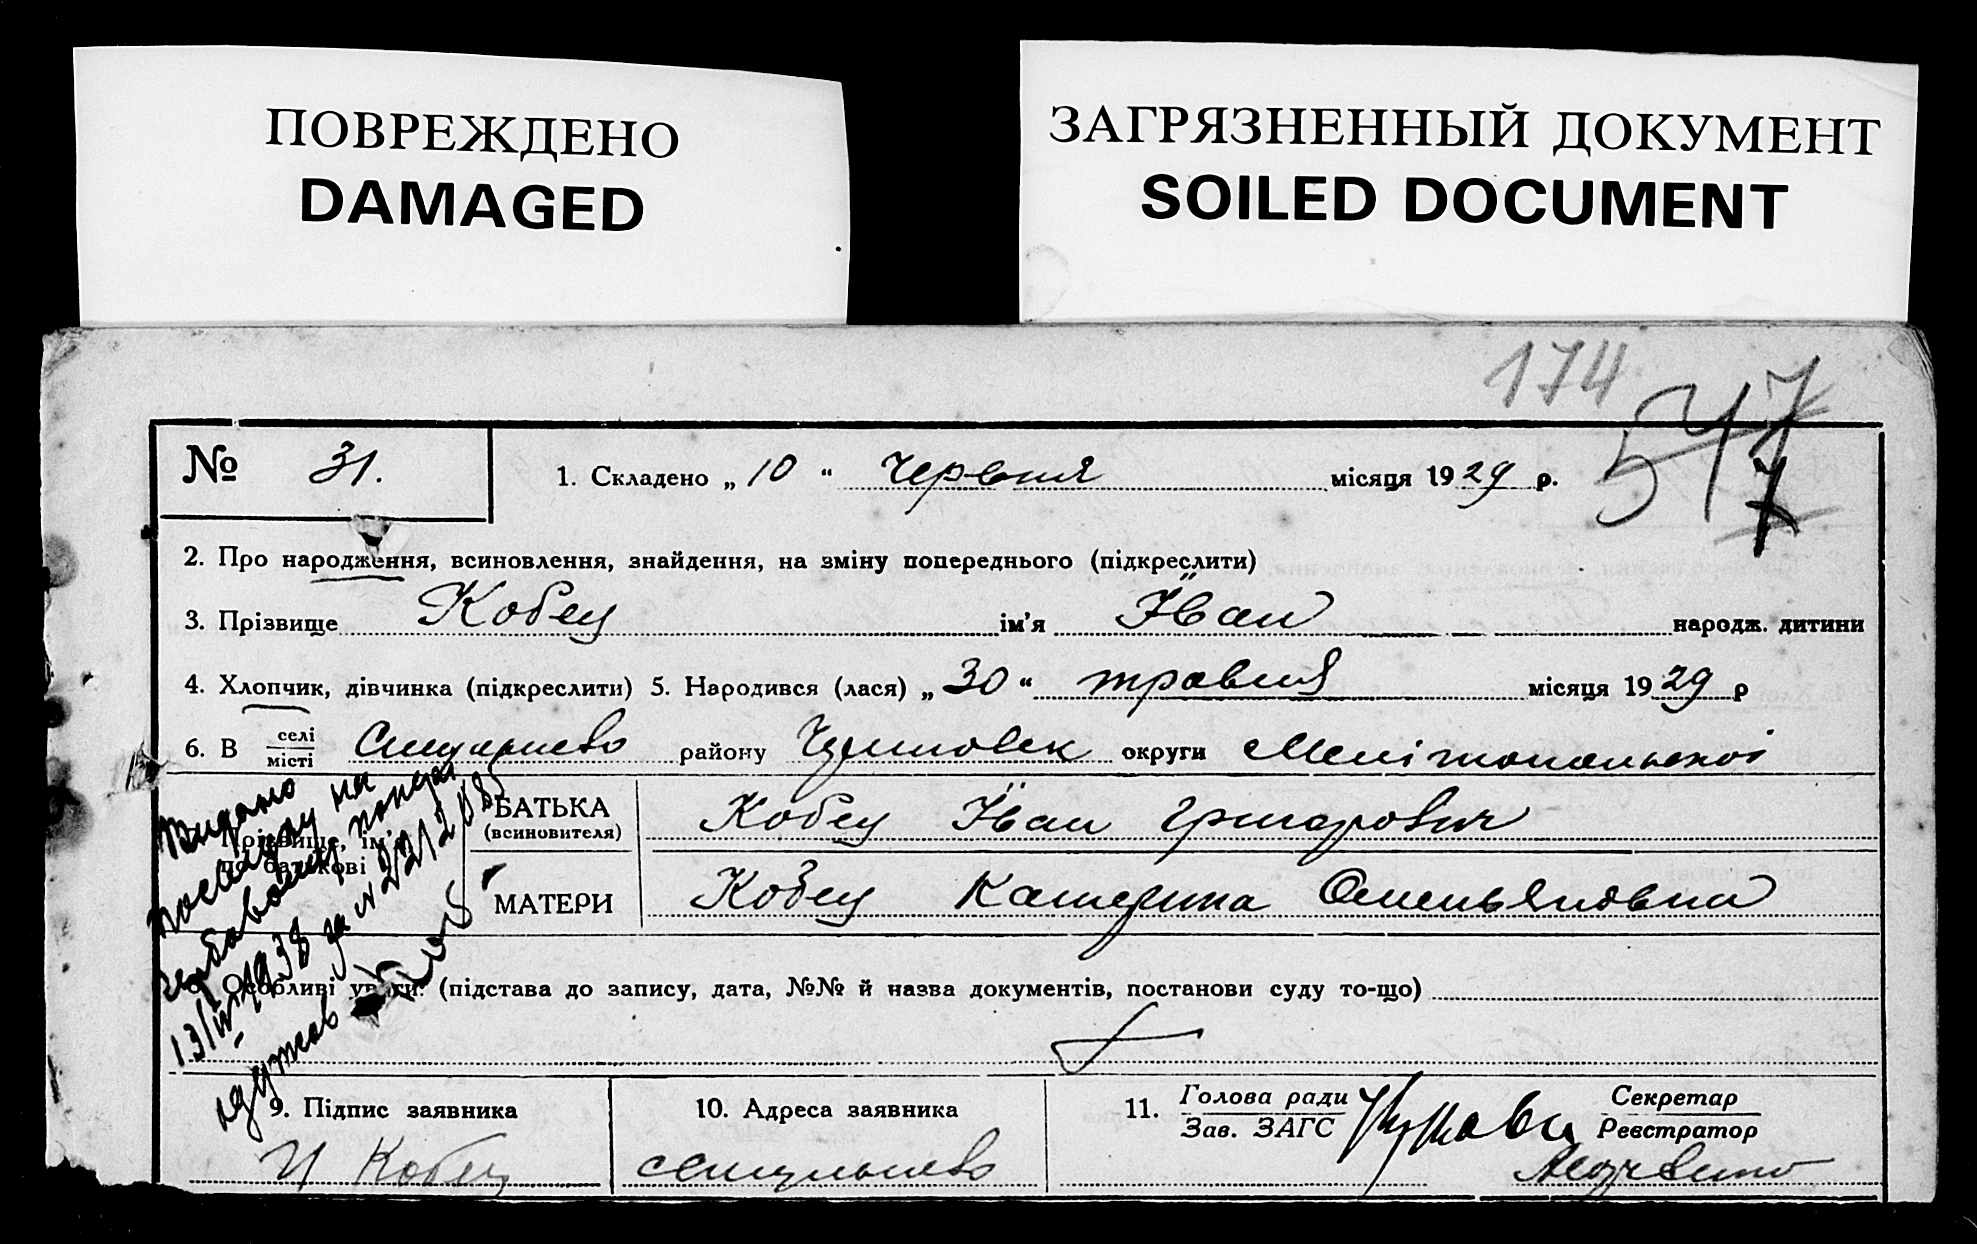 ПОВРЕЖДЕНО
DAMAGED
ЗАГРЯЗНЕННЫЙ ДОКУМЕНТ
SOILED DOCUMENT
174
547
7
№ 31.
1. Складено „ 10 “ червня місяця 1929 р.
2. Про народження, всиновлення, знайдення, на зміну попереднього (підкреслити)
3. Прізвище Кобец ім'я Іван народж. дитини
4. Хлопчик, дівчинка (підкреслити) 5. Народився (лася) „ 30 “ травня місяця 1929 р
6. В селі
місті району округи Мелітопольскої
Прізвище, ім'я
по батькові
БАТЬКА
(всиновителя)
Кобец Іван Григорович
МАТЕРИ
Кобец Катерина Омельяновна
Видано
на
13/IV 1938 за № 2212085
Особливі уваги: (підстава до запису, дата, №№ й назва документів, постанови суду то-що)
9. Підпис заявника
И Кобец
10. Адреса заявника
11. Голова ради
Зав. ЗАГС
Секретар
Реєстратор